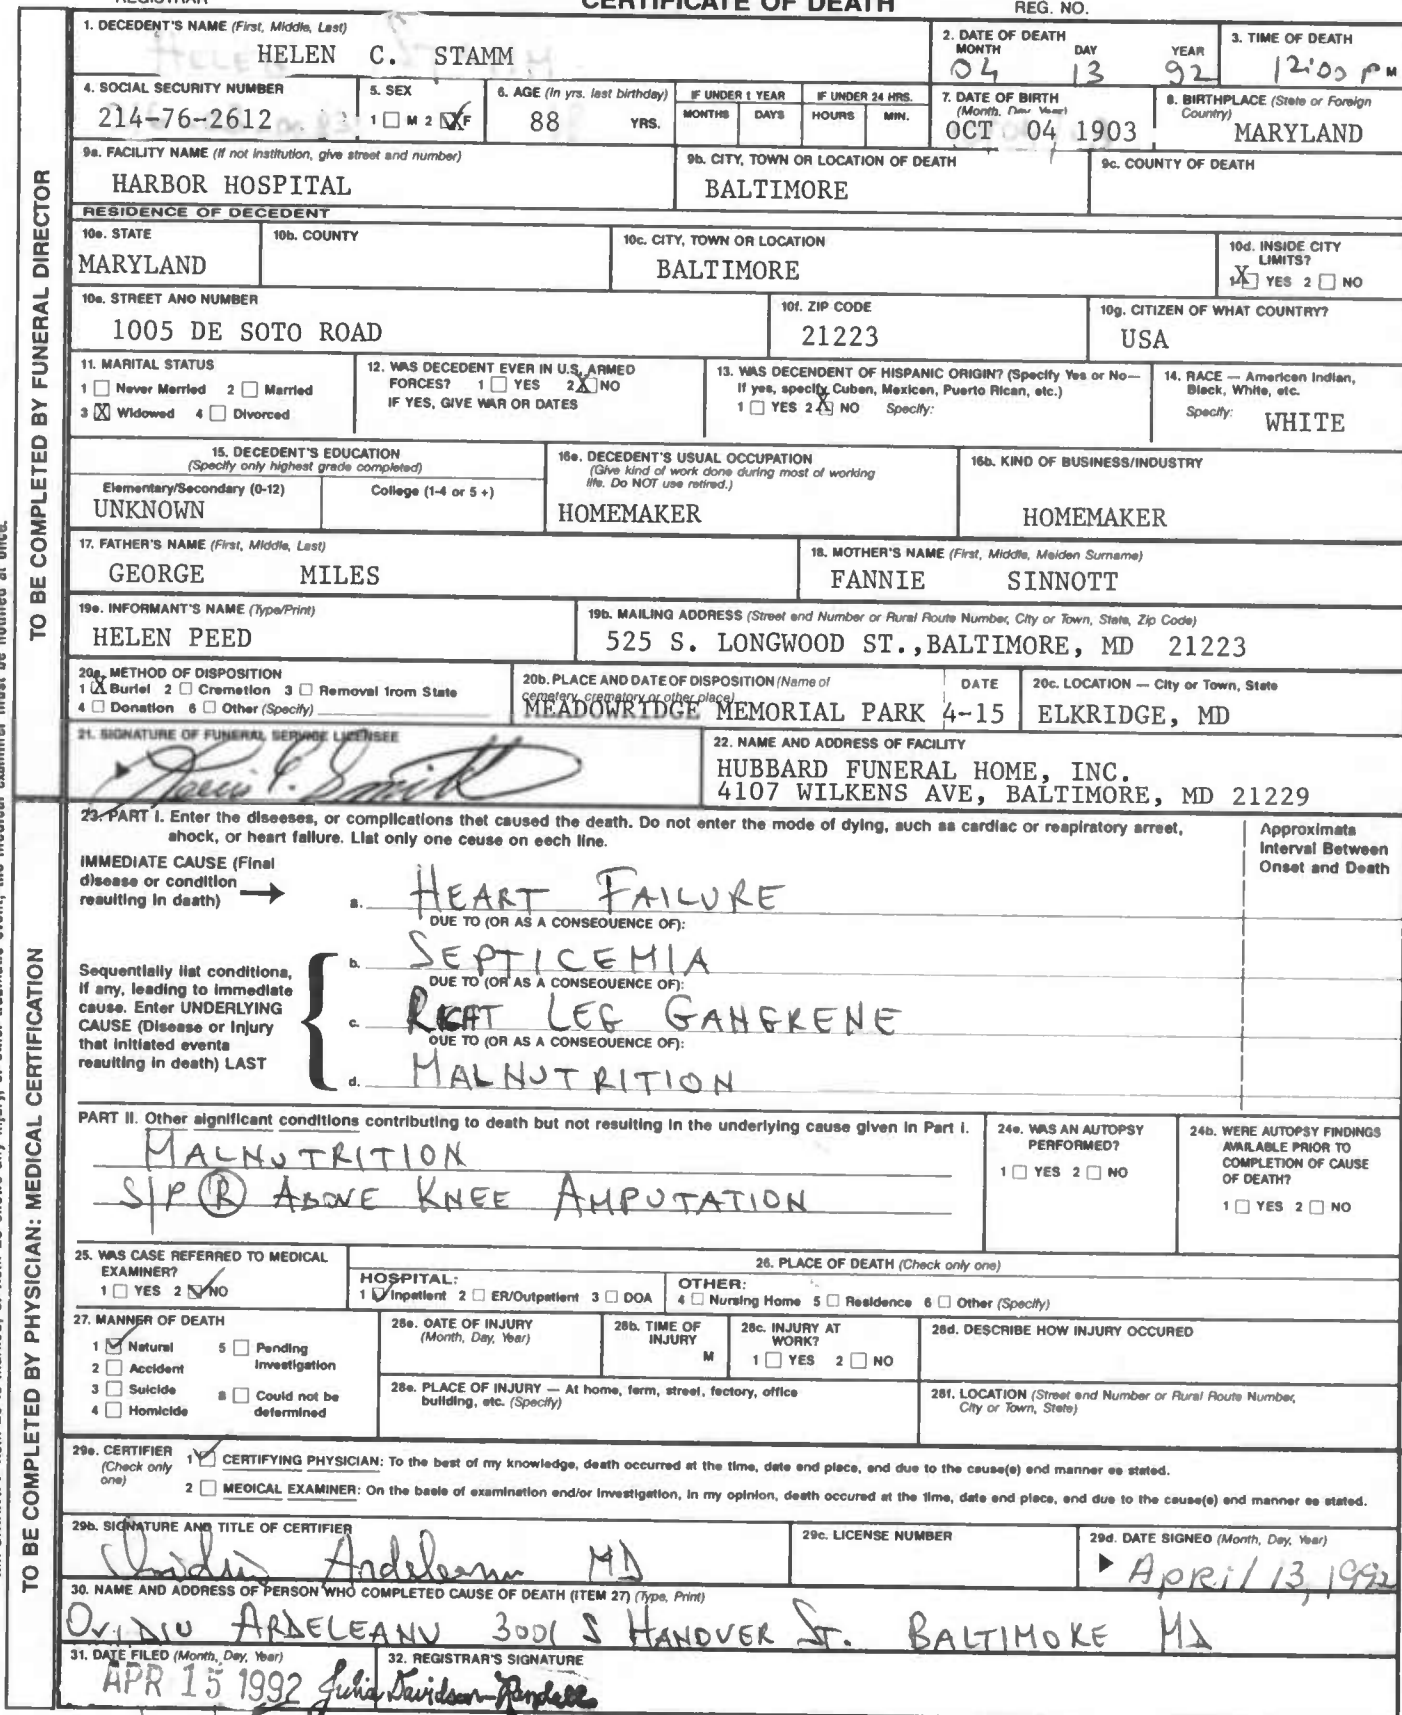 REGISTRAR
CERTIFICATE OF DEATH
REG. NO.
1. DECEDENT'S NAME (First, Middle, Last)
HELEN C. STAMM
2. DATE OF DEATH
MONTH DAY YEAR
04 13 92
3. TIME OF DEATH
12:00 P M
4. SOCIAL SECURITY NUMBER
214-76-2612
5. SEX
1 ☐ M 2 ☒ F
6. AGE (In yrs. last birthday)
88 YRS.
IF UNDER 1 YEAR
MONTHS DAYS
IF UNDER 24 HRS.
HOURS MIN.
7. DATE OF BIRTH
(Month, Day, Year)
OCT 04 1903
8. BIRTHPLACE (State or Foreign
Country)
MARYLAND
9a. FACILITY NAME (If not institution, give street and number)
HARBOR HOSPITAL
9b. CITY, TOWN OR LOCATION OF DEATH
BALTIMORE
9c. COUNTY OF DEATH
RESIDENCE OF DECEDENT
10a. STATE
MARYLAND
10b. COUNTY
10c. CITY, TOWN OR LOCATION
BALTIMORE
10d. INSIDE CITY
LIMITS?
1 ☒ YES 2 ☐ NO
10e. STREET AND NUMBER
1005 DE SOTO ROAD
10f. ZIP CODE
21223
10g. CITIZEN OF WHAT COUNTRY?
USA
11. MARITAL STATUS
1 ☐ Never Married 2 ☐ Married
3 ☒ Widowed 4 ☐ Divorced
12. WAS DECEDENT EVER IN U.S. ARMED
FORCES? 1 ☐ YES 2 ☒ NO
IF YES, GIVE WAR OR DATES
13. WAS DECENDENT OF HISPANIC ORIGIN? (Specify Yes or No—
If yes, specify Cuban, Mexican, Puerto Rican, etc.)
1 ☐ YES 2 ☒ NO Specify:
14. RACE — American Indian,
Black, White, etc.
Specify: WHITE
15. DECEDENT'S EDUCATION
(Specify only highest grade completed)
Elementary/Secondary (0-12)
UNKNOWN
College (1-4 or 5 +)
16a. DECEDENT'S USUAL OCCUPATION
(Give kind of work done during most of working
life. Do NOT use retired.)
HOMEMAKER
16b. KIND OF BUSINESS/INDUSTRY
HOMEMAKER
17. FATHER'S NAME (First, Middle, Last)
GEORGE MILES
18. MOTHER'S NAME (First, Middle, Maiden Surname)
FANNIE SINNOTT
19a. INFORMANT'S NAME (Type/Print)
HELEN PEED
19b. MAILING ADDRESS (Street and Number or Rural Route Number, City or Town, State, Zip Code)
525 S. LONGWOOD ST.,BALTIMORE, MD 21223
20a. METHOD OF DISPOSITION
1 ☒ Burial 2 ☐ Cremation 3 ☐ Removal from State
4 ☐ Donation 6 ☐ Other (Specify)
20b. PLACE AND DATE OF DISPOSITION (Name of
cemetery, crematory or other place)
MEADOWRIDGE MEMORIAL PARK
DATE
4-15
20c. LOCATION — City or Town, State
ELKRIDGE, MD
21. SIGNATURE OF FUNERAL SERVICE LICENSEE
22. NAME AND ADDRESS OF FACILITY
HUBBARD FUNERAL HOME, INC.
4107 WILKENS AVE, BALTIMORE, MD 21229
TO BE COMPLETED BY FUNERAL DIRECTOR
23. PART I. Enter the diseases, or complications that caused the death. Do not enter the mode of dying, such as cardiac or respiratory arrest,
shock, or heart failure. List only one cause on each line.
Approximate
Interval Between
Onset and Death
IMMEDIATE CAUSE (Final
disease or condition
resulting in death) →
a. HEART FAILURE
DUE TO (OR AS A CONSEQUENCE OF):
Sequentially list conditions,
if any, leading to immediate
cause. Enter UNDERLYING
CAUSE (Disease or Injury
that initiated events
resulting in death) LAST
b. SEPTICEMIA
DUE TO (OR AS A CONSEQUENCE OF):
c. LEG GANGRENE
DUE TO (OR AS A CONSEQUENCE OF):
d. MALNUTRITION
PART II. Other significant conditions contributing to death but not resulting in the underlying cause given in Part I.
MALNUTRITION
S/P Ⓡ ABOVE KNEE AMPUTATION
24a. WAS AN AUTOPSY
PERFORMED?
1 ☐ YES 2 ☐ NO
24b. WERE AUTOPSY FINDINGS
AVAILABLE PRIOR TO
COMPLETION OF CAUSE
OF DEATH?
1 ☐ YES 2 ☐ NO
25. WAS CASE REFERRED TO MEDICAL
EXAMINER?
1 ☐ YES 2 ☑ NO
26. PLACE OF DEATH (Check only one)
HOSPITAL:
1 ☑ Inpatient 2 ☐ ER/Outpatient 3 ☐ DOA
OTHER:
4 ☐ Nursing Home 5 ☐ Residence 6 ☐ Other (Specify)
27. MANNER OF DEATH
1 ☑ Natural 5 ☐ Pending
2 ☐ Accident Investigation
3 ☐ Suicide 8 ☐ Could not be
4 ☐ Homicide determined
28a. DATE OF INJURY
(Month, Day, Year)
28b. TIME OF
INJURY
M
28c. INJURY AT
WORK?
1 ☐ YES 2 ☐ NO
28d. DESCRIBE HOW INJURY OCCURED
28e. PLACE OF INJURY — At home, farm, street, factory, office
building, etc. (Specify)
28f. LOCATION (Street and Number or Rural Route Number,
City or Town, State)
29a. CERTIFIER
(Check only
one)
1 ☑ CERTIFYING PHYSICIAN: To the best of my knowledge, death occurred at the time, date and place, and due to the cause(s) and manner as stated.
2 ☐ MEDICAL EXAMINER: On the basis of examination and/or investigation, in my opinion, death occured at the time, date and place, and due to the cause(s) and manner as stated.
29b. SIGNATURE AND TITLE OF CERTIFIER
Ovidiu Ardeleanu MD
29c. LICENSE NUMBER
29d. DATE SIGNED (Month, Day, Year)
April 13, 1992
30. NAME AND ADDRESS OF PERSON WHO COMPLETED CAUSE OF DEATH (ITEM 27) (Type, Print)
OVIDIU ARDELEANU 3001 S HANOVER ST. BALTIMORE MD
31. DATE FILED (Month, Day, Year)
APR 15 1992
32. REGISTRAR'S SIGNATURE
Julia Davidson-Randall
TO BE COMPLETED BY PHYSICIAN: MEDICAL CERTIFICATION